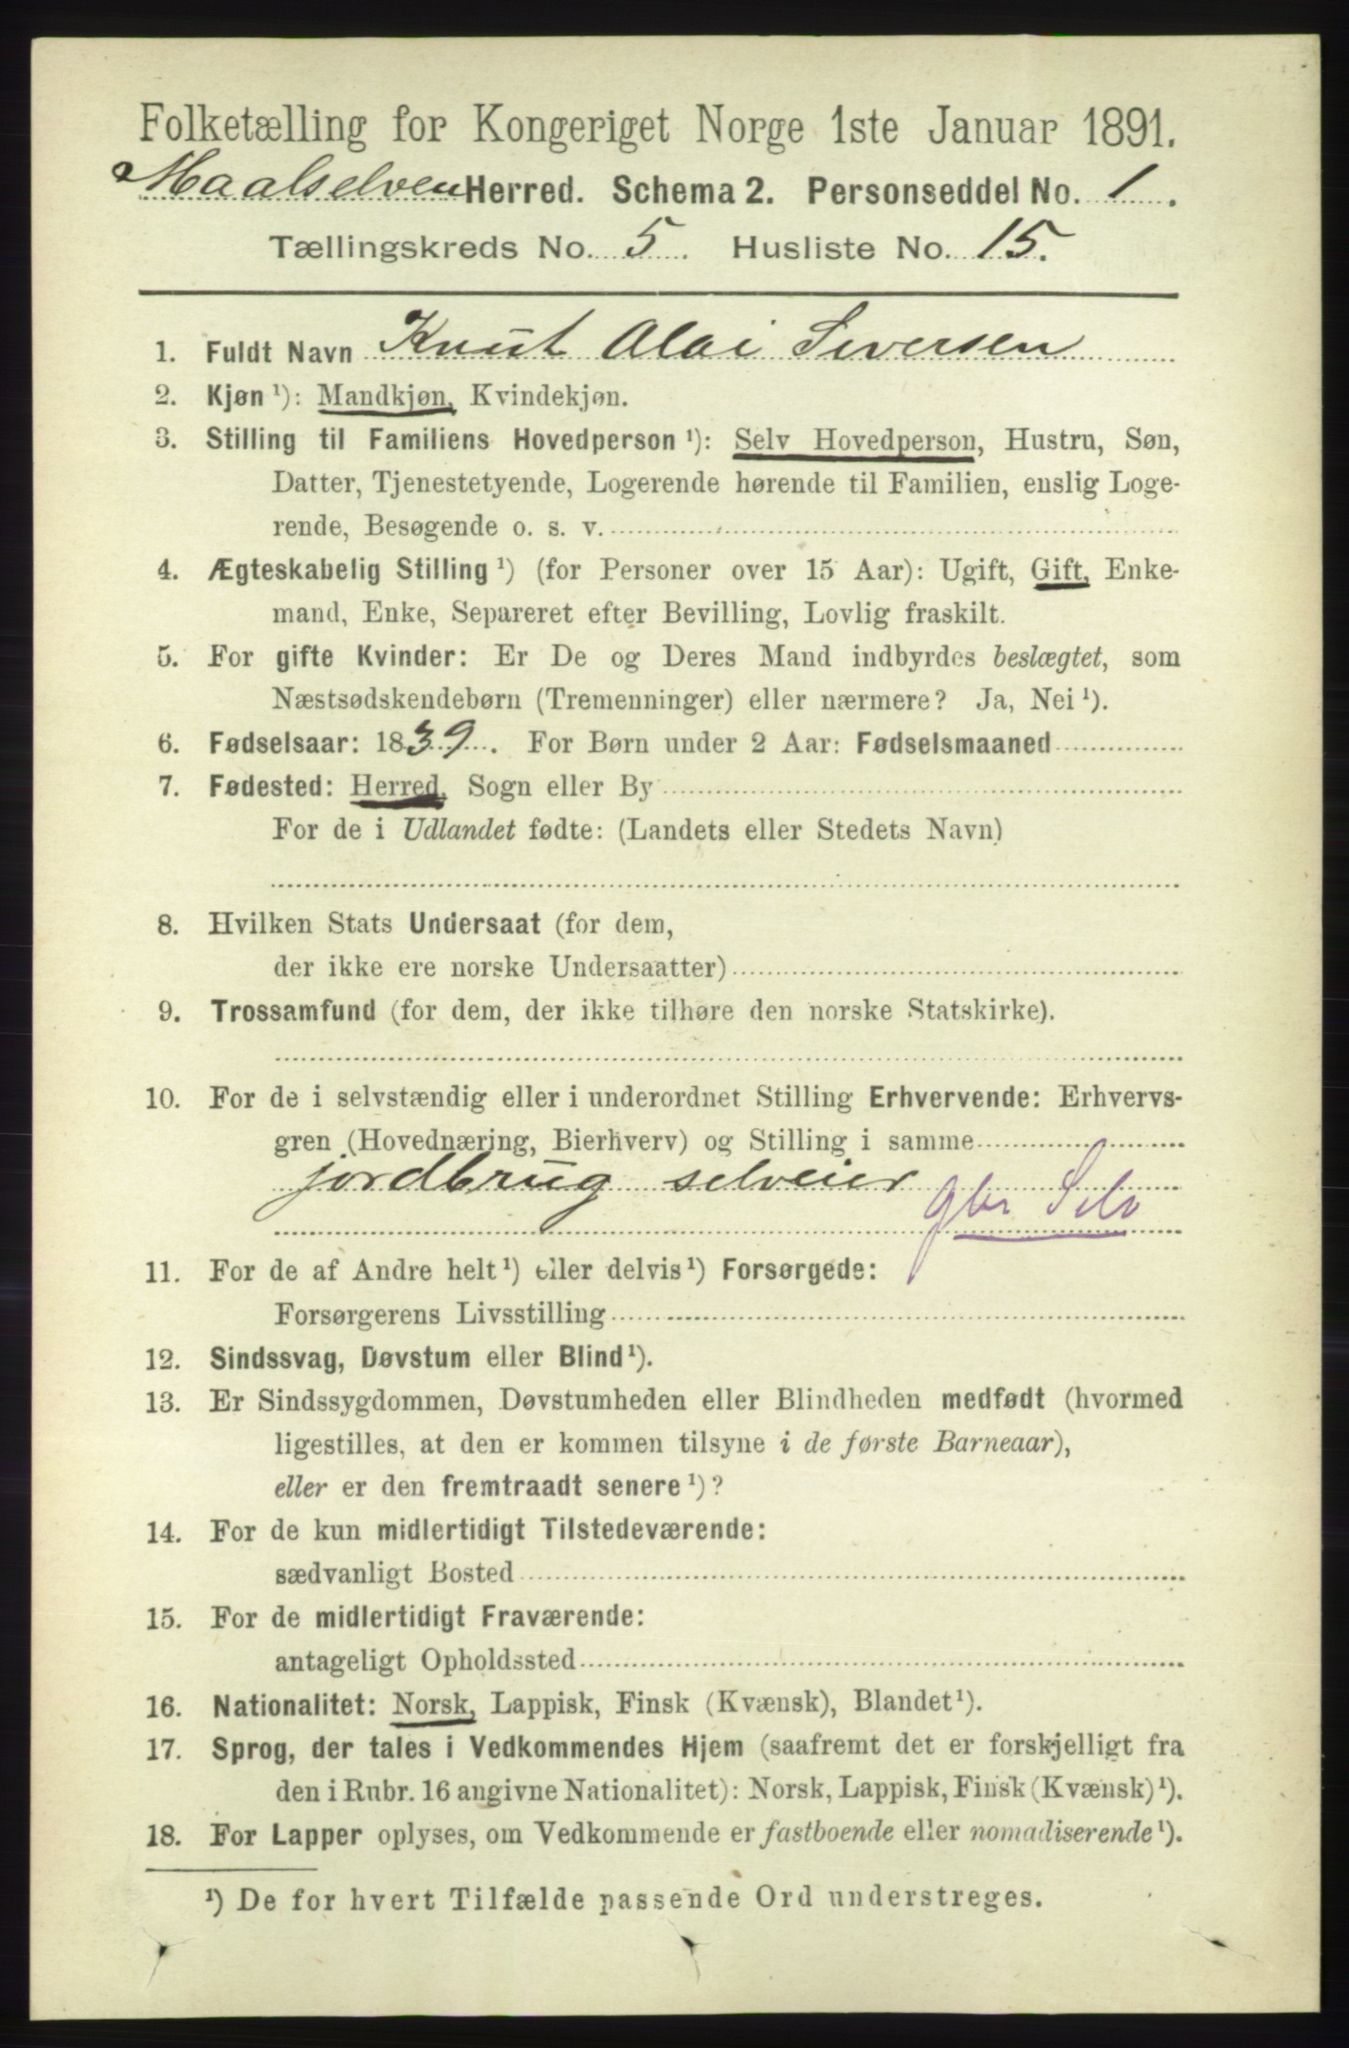 Folketælling for Kongeriget Norge 1ste Januar 1891.
Maalselven Herred. Schema 2. Personseddel No. 1.
Tællingskreds No. 5. Husliste No. 15.
1. Fuldt Navn Knut Olai Siversen
2. Kjøn ¹): Mandkjøn, Kvindekjøn.
3. Stilling til Familiens Hovedperson ¹): Selv Hovedperson, Hustru, Søn,
Datter, Tjenestetyende, Logerende hørende til Familien, enslig Loge-
rende, Besøgende o. s. v.
4. Ægteskabelig Stilling ¹) (for Personer over 15 Aar): Ugift, Gift, Enke-
mand, Enke, Separeret efter Bevilling, Lovlig fraskilt.
5. For gifte Kvinder: Er De og Deres Mand indbyrdes beslægtet, som
Næstsødskendebørn (Tremenninger) eller nærmere? Ja, Nei ¹).
6. Fødselsaar: 1839. For Børn under 2 Aar: Fødselsmaaned
7. Fødested: Herred, Sogn eller By
For de i Udlandet fødte: (Landets eller Stedets Navn)
8. Hvilken Stats Undersaat (for dem,
der ikke ere norske Undersaatter)
9. Trossamfund (for dem, der ikke tilhøre den norske Statskirke).
10. For de i selvstændig eller i underordnet Stilling Erhvervende: Erhvervs-
gren (Hovednæring, Bierhverv) og Stilling i samme
jordbrug selveier
gbr Selv
11. For de af Andre helt ¹) eller delvis ¹) Forsørgede:
Forsørgerens Livsstilling
12. Sindssvag, Døvstum eller Blind ¹).
13. Er Sindssygdommen, Døvstumheden eller Blindheden medfødt (hvormed
ligestilles, at den er kommen tilsyne i de første Barneaar),
eller er den fremtraadt senere ¹)?
14. For de kun midlertidigt Tilstedeværende:
sædvanligt Bosted
15. For de midlertidigt Fraværende:
antageligt Opholdssted
16. Nationalitet: Norsk, Lappisk, Finsk (Kvænsk), Blandet ¹).
17. Sprog, der tales i Vedkommendes Hjem (saafremt det er forskjelligt fra
den i Rubr. 16 angivne Nationalitet): Norsk, Lappisk, Finsk (Kvænsk) ¹).
18. For Lapper oplyses, om Vedkommende er fastboende eller nomadiserende ¹).
¹) De for hvert Tilfælde passende Ord understreges.